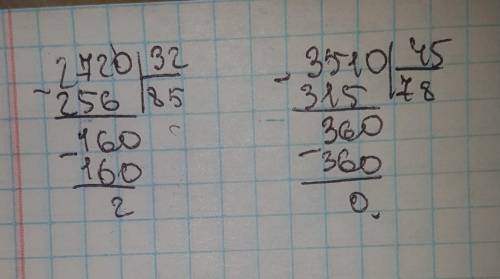 2720 32
- 256 85
- 160
160
2
- 3510 45
315 78
360
- 360
0.